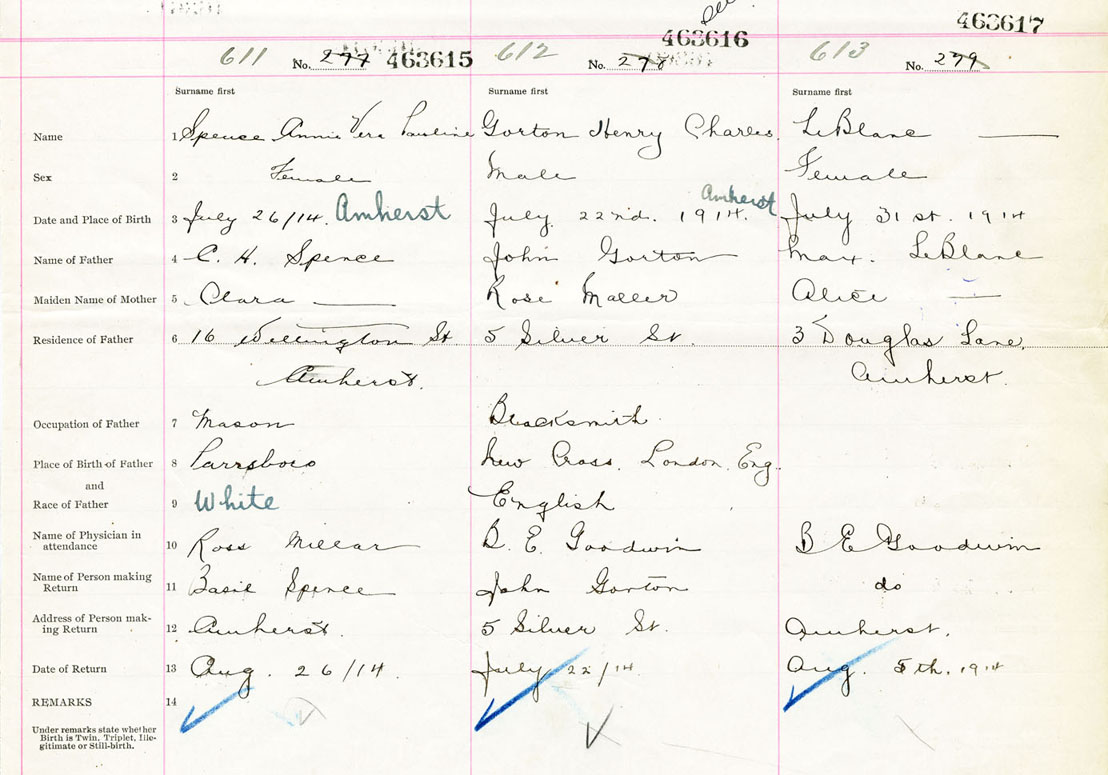 463617
463616
611 No. 277 463615 612 No. 278 613 No. 279
Surname first Surname first Surname first
Name 1 Spence Annie Vera Pauline Gorton Henry Charles. LeBlanc —
Sex 2 Female Male Female
Date and Place of Birth 3 July 26/14. Amherst July 22nd. 1914. Amherst July 31st. 1914
Name of Father 4 C. H. Spence John Gorton Max. LeBlanc
Maiden Name of Mother 5 Clara — Rose Maller Alice —
Residence of Father 6 16 Wellington St. 5 Silver St. 3 Douglas Lane,
Amherst. Amherst.
Occupation of Father 7 Mason Blacksmith
Place of Birth of Father 8 Parrsboro New Cross. London. Eng.
and
Race of Father 9 White English
Name of Physician in
attendance 10 Ross Millar B. E. Goodwin B E Goodwin
Name of Person making
Return 11 Basil Spence John Gorton do
Address of Person mak-
ing Return 12 Amherst. 5 Silver St. Amherst.
Date of Return 13 Aug. 26/14. July 22/14 Aug. 5th. 1914
REMARKS 14
Under remarks state whether
Birth is Twin, Triplet, Ille-
gitimate or Still-birth.